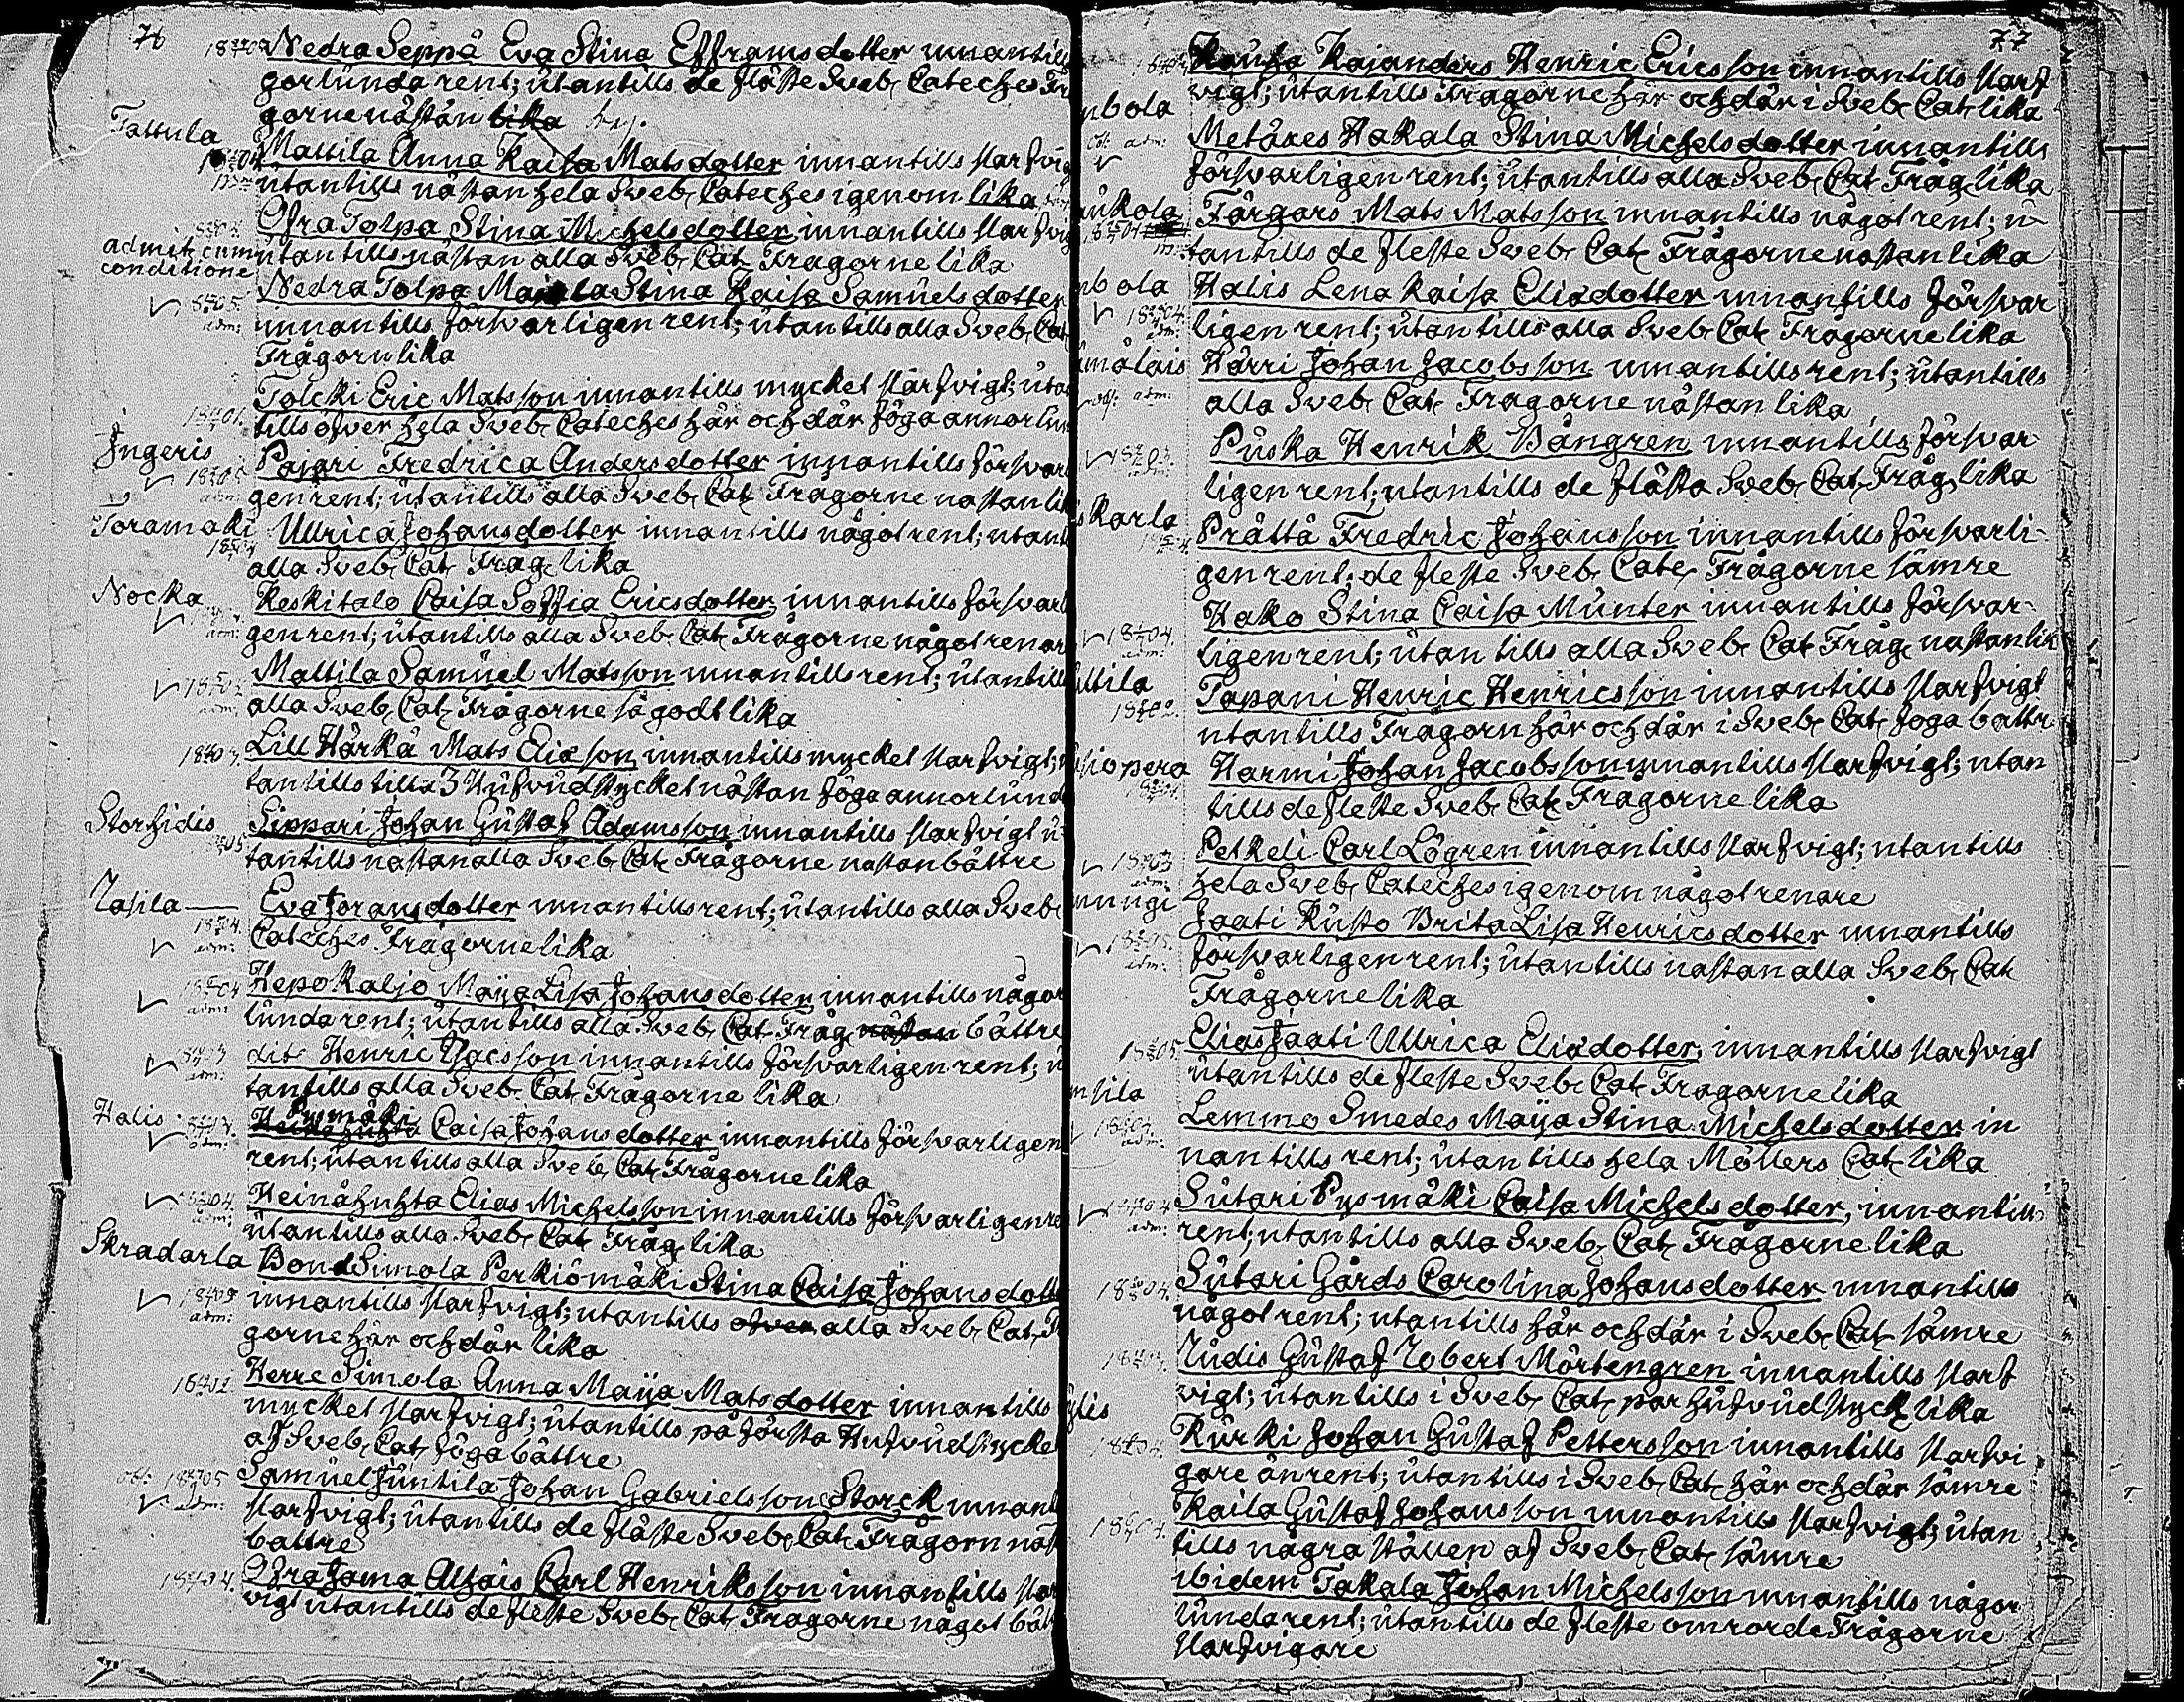 76
Nedra Seppå Eva Stina Efframsdotter innantill
gorlunda rent; utantills de flåste Sveb. Cateches Frå
gorne nåstan lika
Tattula
Mattila Anna Kaisa Matsdotter innantills starfvig
utantills nåstan hela Sveb. Cateches igenom lika
Ofra Tolpa Stina Michelsdotter innantills starfvig
admit. cum utantills nåstan alla Sveb. Cat. Frågorne lika
conditione
Nedra Tolpa Stina Kaisa Samuelsdotter
1805. innantills forsvarligen rent; utantills alla Sveb. Cat
adm:
Frågorn lika
Tolcki Eric Matsson innantills mycket starfvigt; uta
tills ofver hela Sveb. Cateches hår och dår foga annorlun
Ingeris
Pajari Fredrica Andersdotter innantills forsvar
adm: gen rent; utantills alla Sveb. Cat Frågorne nastan lik
Toramaki
Ullrica Johansdotter innantills något rent; utant
alla Sveb. Cat. Fråg. lika
Nocka
Keskitalo Caisa Soffia Ericsdotter innantills forsvarl
adm: gen rent; utantills alla Sveb. Cat. Frågorne något renar
Mattila Samuel Matsson innantills rent; utantill
adm: alla Sveb. Cat. Frågorne så godt lika
Lill Hårkå Mats Eliæson innantills mycket starfvigt;
tantills tills 3 Hufvudstycket nåstan foga annorlund
Storhidis
Sippari Johan Gustaf Adamsson innantills starfvigt u
tantills nastan alla Sveb. Cat. Frågorne nastan båttre
Rasila
Eva Joransdotter innantills rent; utantills alla Sveb.
adm: Cateches Frågorne lika
Hepokaljo Maija Lisa Johansdotter innantills någor
adm: lunda rent; utantills alla Sveb. Cat. Fråg. nåstan båttre
dito Henric Isacsson innantills forsvarligen rent; u
adm: tantills alla Sveb. Cat. Frågorne lika
Pysmåki
Halis
Caisa Johansdotter innantills forsvarligen
adm: rent; utantills alla Sveb. Cat. Frågorne lika
Heinåhuhta Elias Michelsson innantills forsvarligen re
adm: utantills alla Sveb. Cat. Fråg. lika
Skradarla
Bond Simola Perkiömåki Stina Caisa Johansdott
adm: innantills starfvigt; utantills ofver alla Sveb. Cat. F
gorne hår och dår lika
Herre Simola Anna Maija Matsdotter innantills
mycket starfvigt; utantills på forsta Hufvudstycke
af Sveb. Cat. foga båttre
1805 Samuel Juntila Johan Gabrielsson Storck innant
adm: starfvigt; utantills de flåste Sveb. Cat. Frågorn nåst
båttre
Ofra Jama Alhais Carl Henriksson innantills star
vigt utantills de fleste Sveb. Cat. Frågorne något båt
77
Kauha Kajanders Henric Ericsson innantills starf
vigt; utantills Frågorne hår och dår i Sveb. Cat. lika
nbola
adm: Metåxes Hakala Stina Michelsdotter innantills
forsvarligen rent; utantills alla Sveb. Cat. Fråg. lika
Fårgars Mats Matsson innantills något rent; u-
tantills de fleste Sveb. Cat. Frågorne nastan lika
nbola
Halis Lena Kaisa Eliædotter innantills forsvar
adm: ligen rent; utantills alla Sveb. Cat Frågorne lika
Hårri Johan Jacobsson innantills rent; utantills
adm: alla Sveb. Cat. Frågorne nåstan lika
Puska Henrik Vångren innantills forsvar
ligen rent; utantills de flåsta Sveb. Cat. Fråg. lika
skarla
Pråttå Fredric Johansson innantills forsvarli-
gen rent; de fleste Sveb. Cate. Frågorne såmre
Hako Stina Caisa Munter innantills forsvar-
1804.
adm: ligen rent; utantills alla Sveb. Cat Fråg. nastan lik
ttila
Tapani Henric Henricsson innantills starfvigt
1802. utantills Frågorn hår och dår i Sveb. Cat. foga båttr.
iopera
Harmi Johan Jacobsson innantills starfvigt; utan
tills de fleste Sveb. Cat. Frågorne lika
Petkeli Carl Lögren innantills starfvigt; utantills
1803
adm: hela Sveb. Cateches igenom något renare
nungi
Jaati Rusto Brita Lisa Henricsdotter innantills
adm: forsvarligen rent; utantills nastan alla Sveb. Cat
Frågorne lika
Elias Jaati Ullrica Eliædotter innantills starfvigt
utantills de fleste Sveb. Cat. Frågorne lika
nsila
Lemmo Smedes Maija Stina Michelsdotter in
adm: nantills rent; utantills hela Möllers Cat. lika
Sutari Pysmåki Caisa Michelsdotter, innantills
adm: rent; utantills alla Sveb. Cat. Frågorne lika
Sutari Gårds Carolina Johansdotter innantills
1804. något rent; utantills hår och dår i Sveb. Cat. såmre
Rudis Gustaf Robert Mårtengren innantills starf
vigt; utantills i Sveb. Cat. par hufvudstyck. lika
Kurki Johan Gustaf Pettersson innantills starfvi
gare ån rent; utantills i Sveb. Cat. hår och dår såmre
Kaila Gustaf Johansson innantills starfvigt; utan
tills några stållen af Sveb. Cat. såmre
ibidem Takala Johan Michelsson innantills någor
lunda rent; utantills de fleste omrorde Frågorne
starfvigare